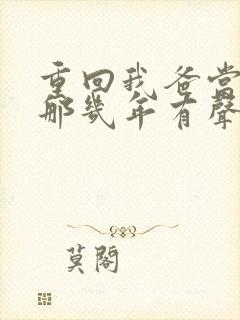 重回我爸當
那幾年有聲
莫閣